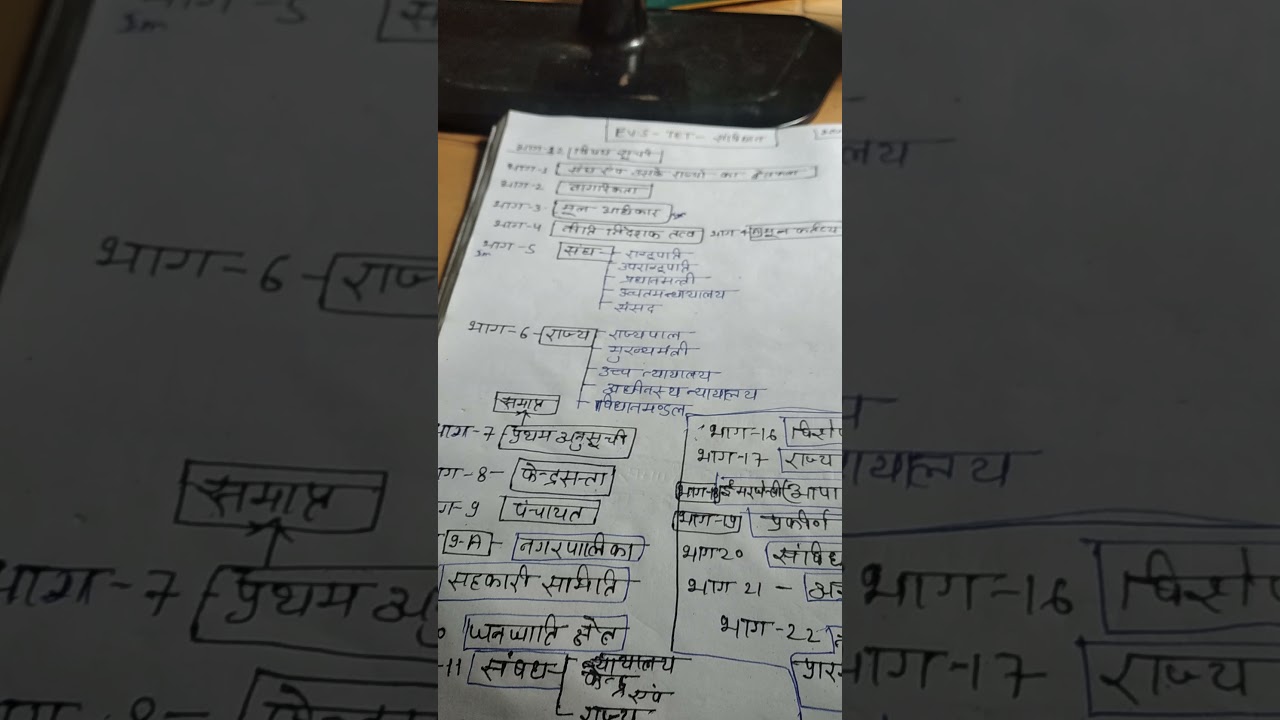 EVS-TET- संविधान
भाग-1 संघ एवं उसके राज्यों का क्षेत्रफल
भाग-2 नागरिकता
भाग-3 मूल अधिकार
भाग-4 नीति निदेशक तत्व भाग-4 मूल कर्तव्य
भाग-5 संघ - राष्ट्रपति
उपराष्ट्रपति
प्रधानमन्त्री
उच्चतमन्यायालय
संसद
भाग-6 राज्य - राज्यपाल
मुख्यमंत्री
उच्च न्यायालय
अधीनस्थ न्यायालय
विधानमण्डल
समाप्त
भाग-7 प्रथम अनुसूची
भाग-8- केन्द्रसत्ता
ग-9 पंचायत
9-A नगरपालिका
सहकारी समिति
जनजाति क्षेत्र
-11 संबंध न्यायालय
केन्द्र
एवं
राज्य
भाग-16 विशेष
भाग-17 राज्य
आपा
भाग-19 प्रकीर्ण
भाग 20 संविध
भाग 21 -
भाग-22